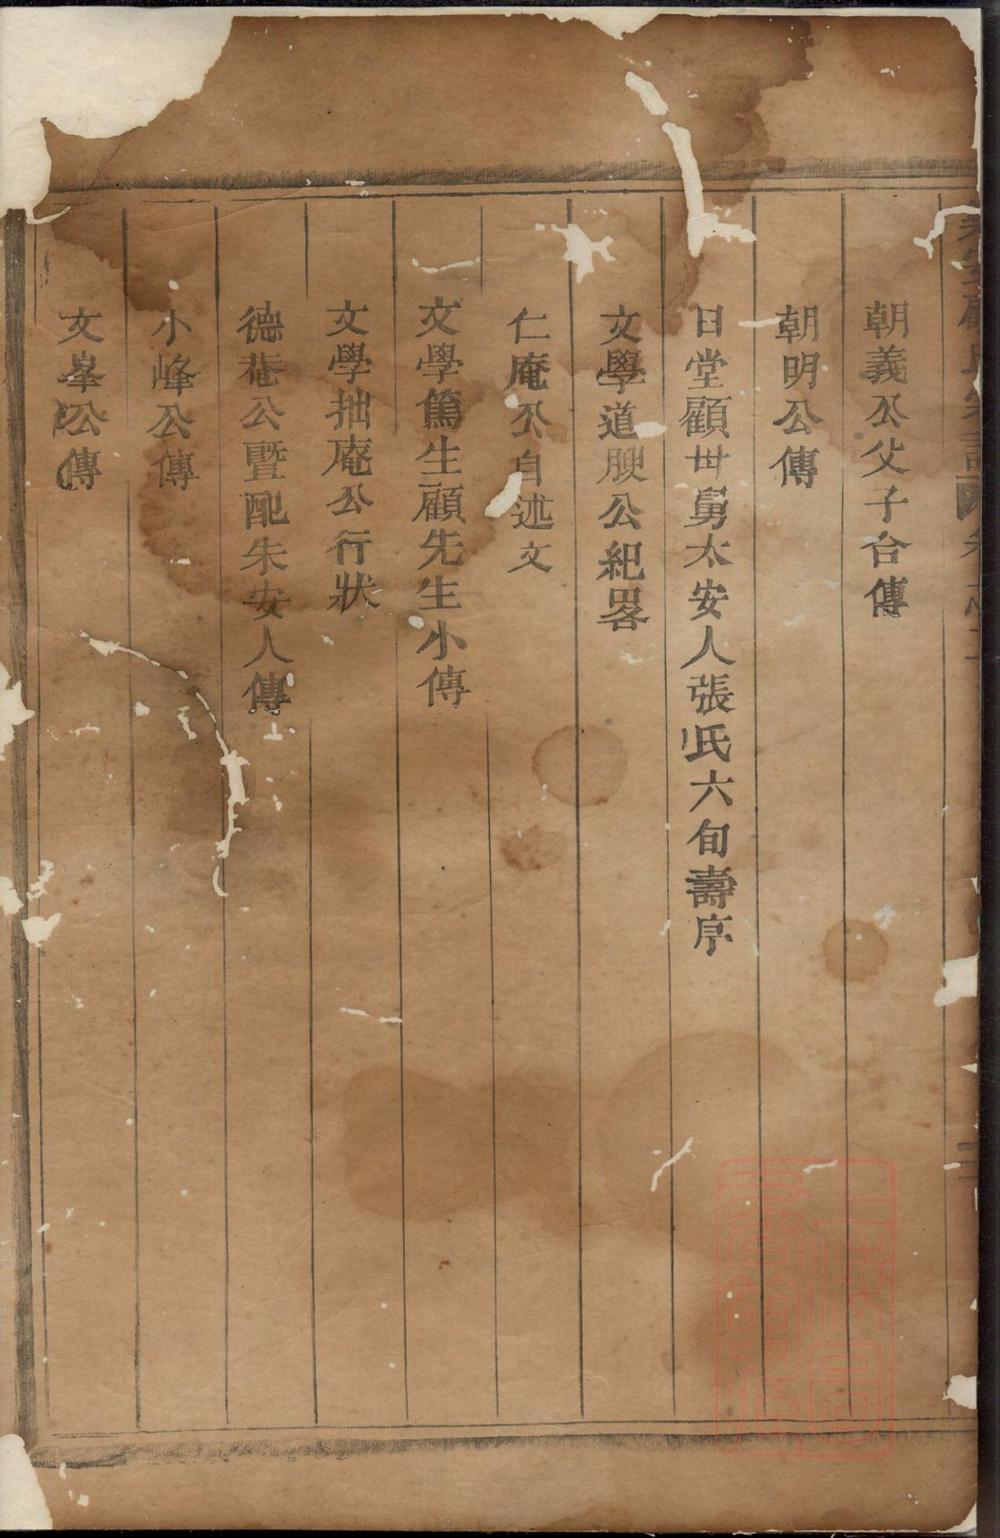 朝義公父子合傳
朝明公傳
日堂顧世舅太安人張氏六旬壽序
文學道腴公紀畧
仁庵公自述文
文學篤生顧先生小傳
文學拙庵公行狀
德菴公暨配朱安人傳
小峰公傳
文峯公傳